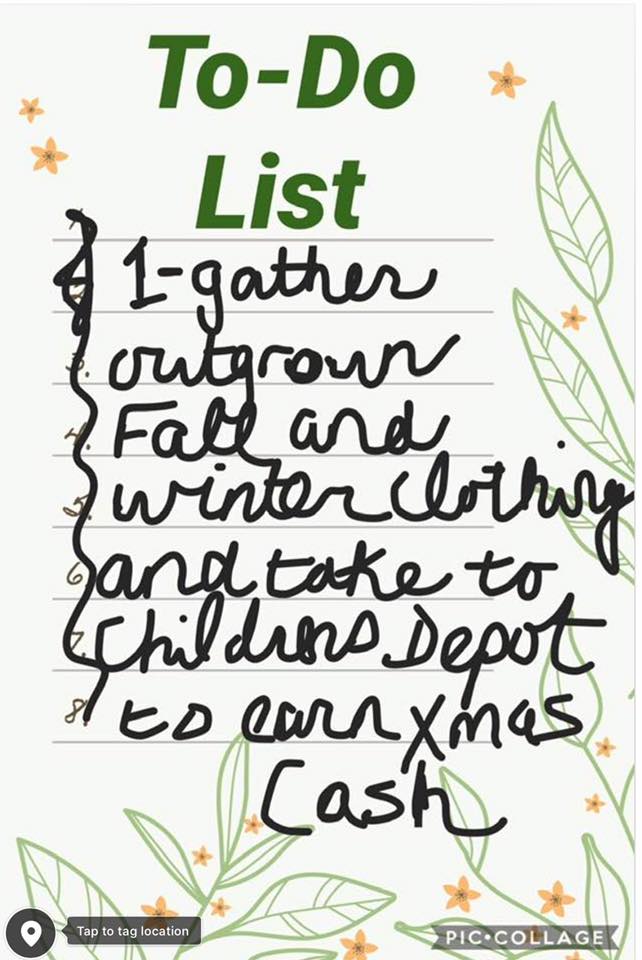 To-Do
List
1-gather
outgrown
Fall and
winter clothing
6. and take to
7. Childrens Depot
8. to earn Xmas
Cash
Tap to tag location
PIC•COLLAGE